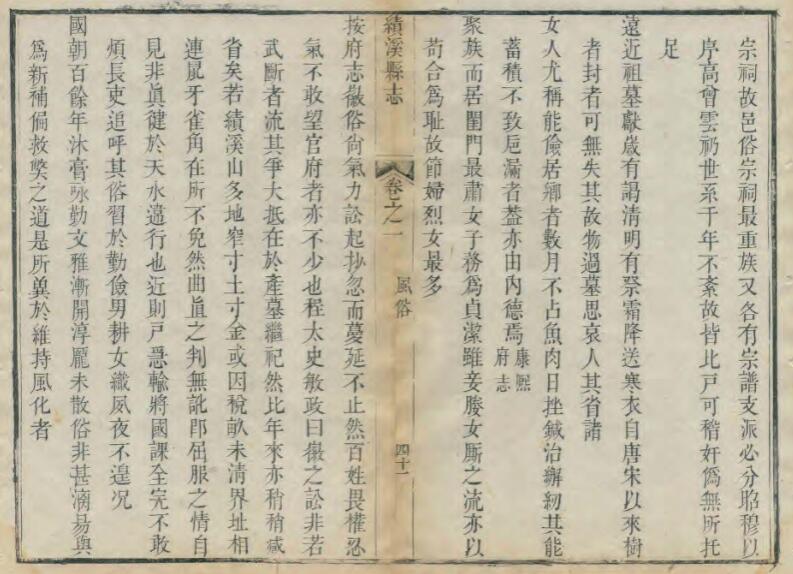 宗祠故邑俗宗祠最重族又各有宗譜支派必分昭穆以
序高曾雲礽世系千年不紊故皆比戶可稽奸僞無所托
足
遠近祖墓獻歲有謁清明有祭霜降送寒衣自唐宋以來樹
者封者可無失其故物過墓思哀人其省諸
女人尤稱能儉居鄉者數月不占魚肉日挫鍼治繲紉其能
蓄積不致卮漏者葢亦由內德焉康熙府志
聚族而居閨門最肅女子務爲貞潔雖妾媵女厮之流亦以
苟合爲恥故節婦烈女最多
績溪縣志 卷之一 風俗 四十一
按府志徽俗尙氣力訟起抄忽而蔓延不止然百姓畏權忍
氣不敢望官府者亦不少也程太史敏政曰徽之訟非若
武斷者流其爭大抵在於產墓繼祀然比年來亦稍稍減
省矣若績溪山多地窄寸土寸金或因稅畝未淸界址相
連鼠牙雀角在所不免然曲直之判無訛卽屈服之情自
見非眞健於天水違行也近則戶悬輸將國課全完不敢
煩長吏追呼其俗習於勤儉男耕女織夙夜不遑况
國朝百餘年沐膏咏勤文雅漸開淳龐未散俗非甚漓易與
爲新補偏救獘之道是所兾於維持風化者